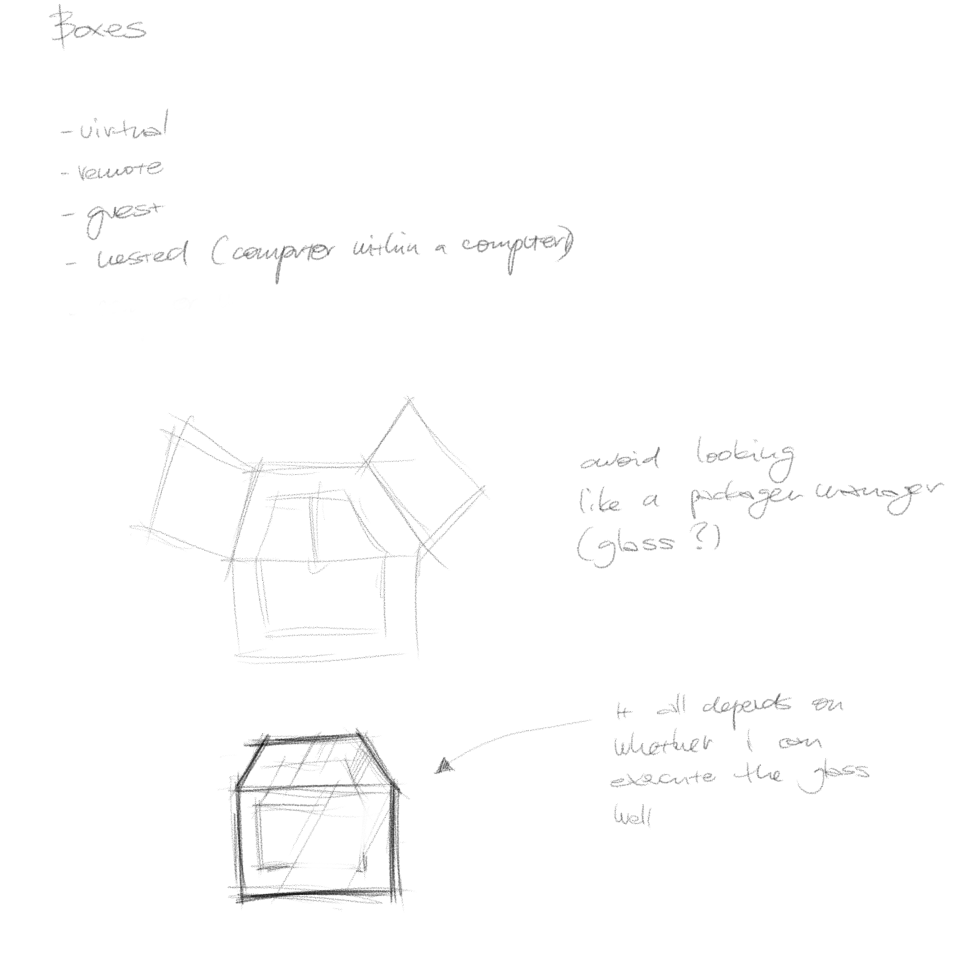 Boxes
- virtual
- remote
- guest
- nested (computer within a computer)
avoid looking
like a packager manager
(glass?)
It all depends on
whether I can
execute the glass
well